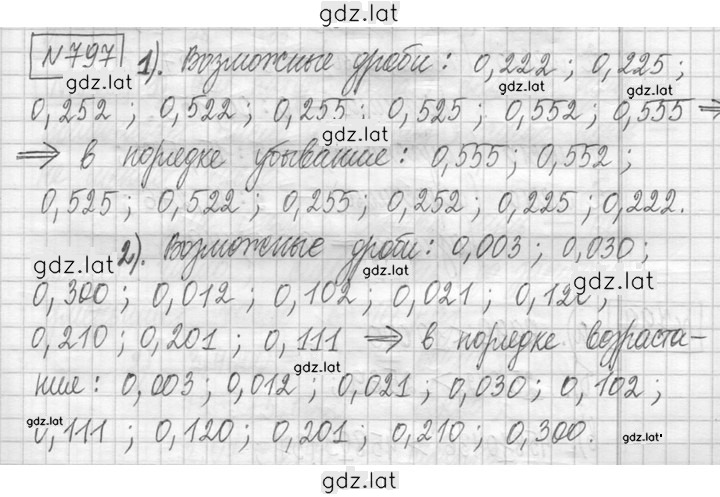 gdz.lat
N 797 1). Возможные дроби: 0,222; 0,225;
gdz.lat
gdz.lat
gdz.lat
0,252; 0,522; 0,255; 0,525; 0,552; 0,555 ⇒
gdz.lat
⇒ в порядке убывание: 0,555; 0,552;
0,525; 0,522; 0,255; 0,252; 0,225; 0,222.
2). Возможные дроби: 0,003; 0,030;
gdz.lat
gdz.lat
gdz.lat
0,300; 0,012; 0,102; 0,021;
0,210; 0,201; 0,111 ⇒ в порядке возраста-
ние: 0,003; 0,012; 0,021; 0,030; 0,102;
gdz.lat
0,111; 0,120; 0,201; 0,210; 0,300.
gdz.lat
gdz.lat